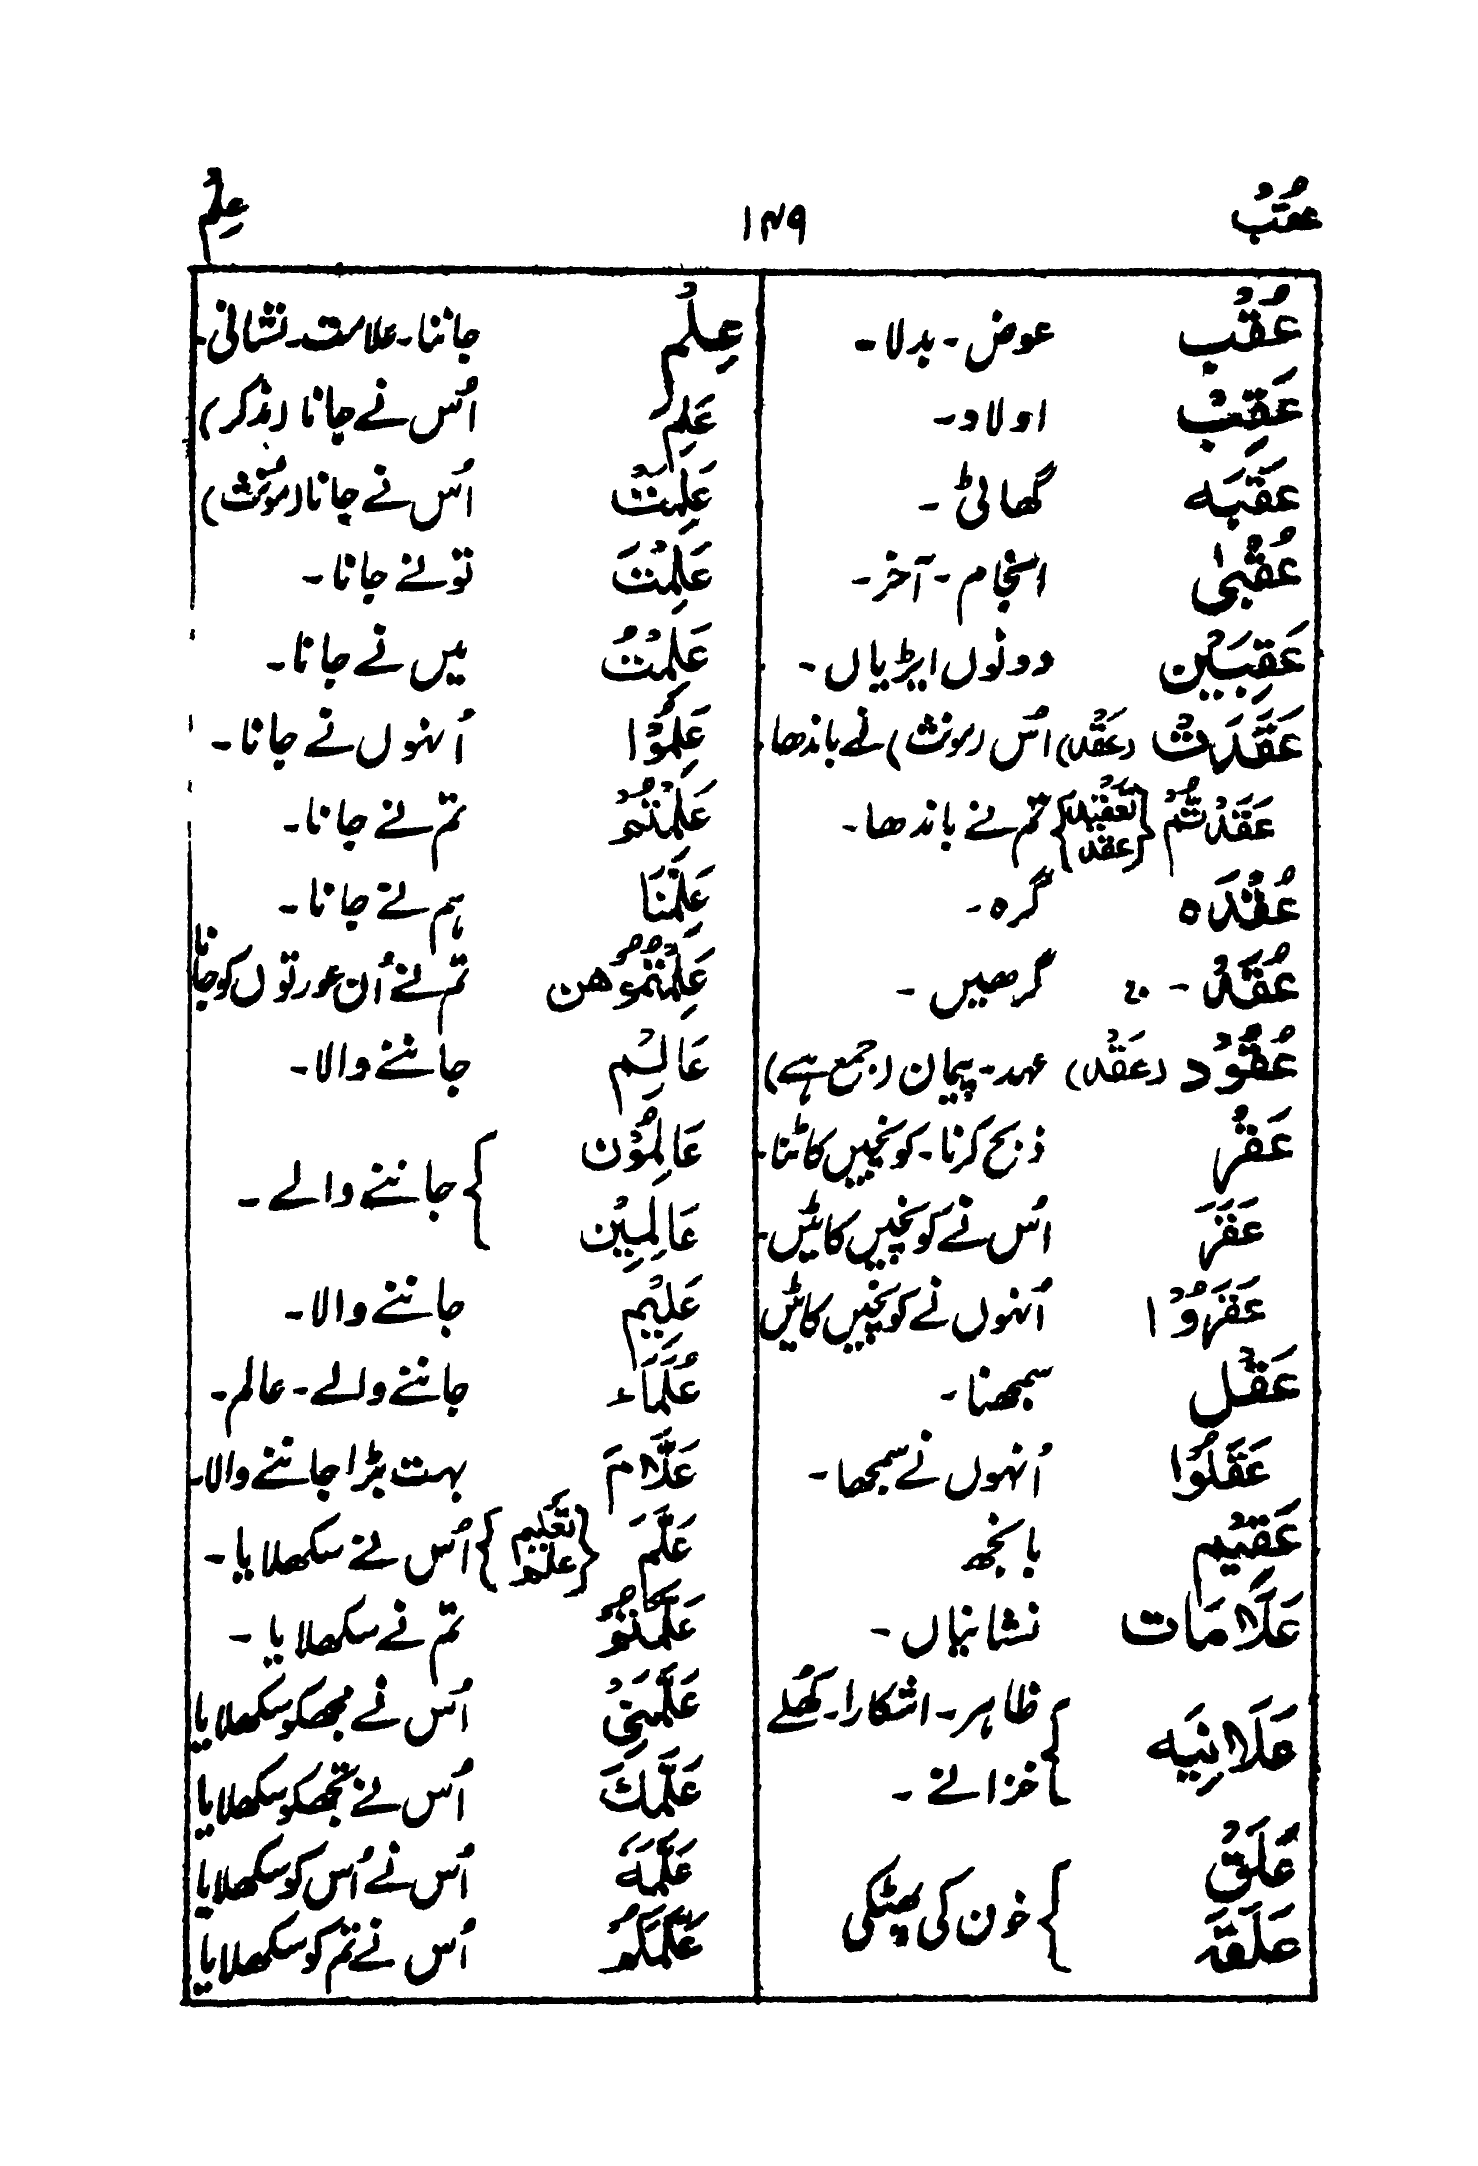 عُقْبُ ۱۴۹ عِلْمُ
عُقْب عوض - بدلا -
عَقِبْ اولاد -
عَقَبَه گھاٹی -
عُقْبیٰ انجام - آخر -
عَقِبَیْن دونوں ایڑیاں -
عَقَدَتْ (عَقْد) اُس (مونث) نے باندھا
عَقَدْتُمْ {تَعْقِید عقد} تم نے باندھا -
عُقْدَہ گرہ -
عُقَدْ - گرھیں -
عُقُوْد (عَقْد) عہد - پیمان (جمع ہے)
عَقْر ذبح کرنا - کونچیں کاٹنا -
عَقَرَ اُس نے کونچیں کاٹیں -
عَقَرُوْا اُنہوں نے کونچیں کاٹیں
عَقْل سمجھنا -
عَقَلُوْا اُنہوں نے سمجھا -
عَقِیْم بانجھ
عَلَامَات نشانیاں -
عَلَانِیَه { ظاہر - اشکارا - کھُلے
خزانے -
عَلَقْ
عَلَقَہ } خون کی پھٹکی
عِلْم جاننا - علامت - نشانی -
عَلِمَ اُس نے جانا (مذکر)
عَلِمَتْ اُس نے جانا (مونث)
عَلِمْتَ تو نے جانا -
عَلِمْتُ میں نے جانا -
عَلِمُوْا اُنہوں نے جانا -
عَلِمْتُمْ تم نے جانا -
عَلِمْنَا ہم نے جانا -
عَلِمْتُمُوْھن تم نے اُن عورتوں کو جانا
عَالِم جاننے والا -
عَالِمُوْن
عَالِمِیْن } جاننے والے -
عَلِیْم جاننے والا -
عُلَمَاء جاننے والے - عالم -
عَلَّام بہت بڑا جاننے والا -
عَلَّمَ {تَعْلِیم علم} اُس نے سکھلایا -
عَلَّمْتُمْ تم نے سکھلایا -
عَلَّمَنِیْ اُس نے مجھکو سکھلایا
عَلَّمَكَ اُس نے تجھکو سکھلایا
عَلَّمَهٗ اُس نے اُس کو سکھلایا
عَلَّمَكُمْ اُس نے تم کو سکھلایا